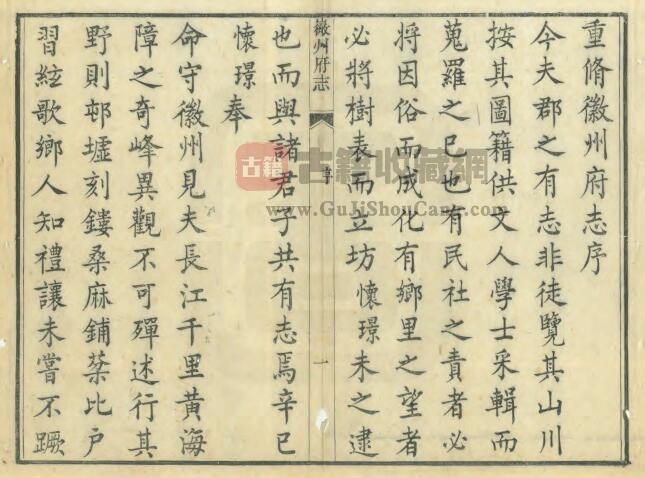 重脩徽州府志序
今夫郡之有志非徒覽其山川
按其圖籍供文人學士采輯而
蒐羅之已也有民社之責者必
將因俗而成化有鄉里之望者
必將樹表而立坊懷璟未之逮
徽州府志
一
也而與諸君子共有志焉辛巳
懷璟奉
命守徽州見夫長江千里黃海
障之奇峰異觀不可殫述行其
野則邨墟刻鏤桑麻鋪棻比戶
習絃歌鄉人知禮讓未嘗不蹶
古籍
古籍收藏網
www.GuJiShouCang.com